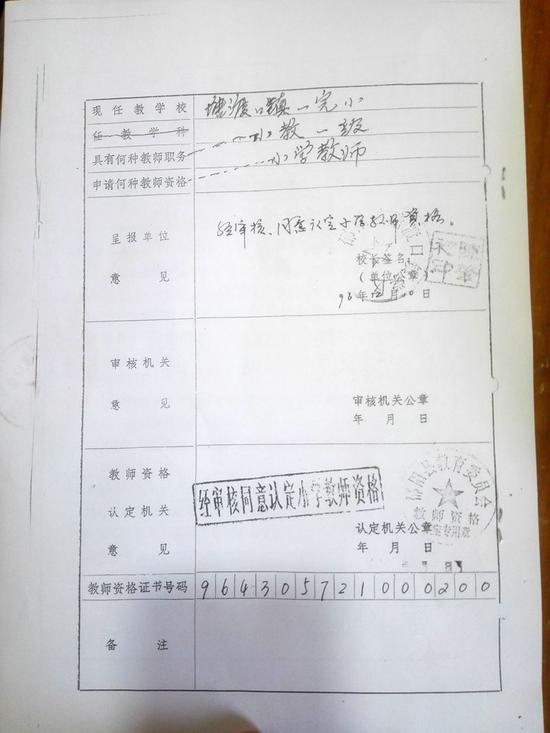 现任教学校 塘渡口镇一完小
任教学科
具有何种教师职务 小教一级
申请何种教师资格 小学教师
呈报单位
意见
经审核、同意认定小学教师资格。
校长签名:
(单位公章)
96年12月10日
审核机关
意见
审核机关公章
年 月 日
教师资格
认定机关
意见
经审核同意认定小学教师资格
县教育委员会
教师资格
认定专用章
认定机关公章
年 月 日
教师资格证书号码 964305721000200
备注